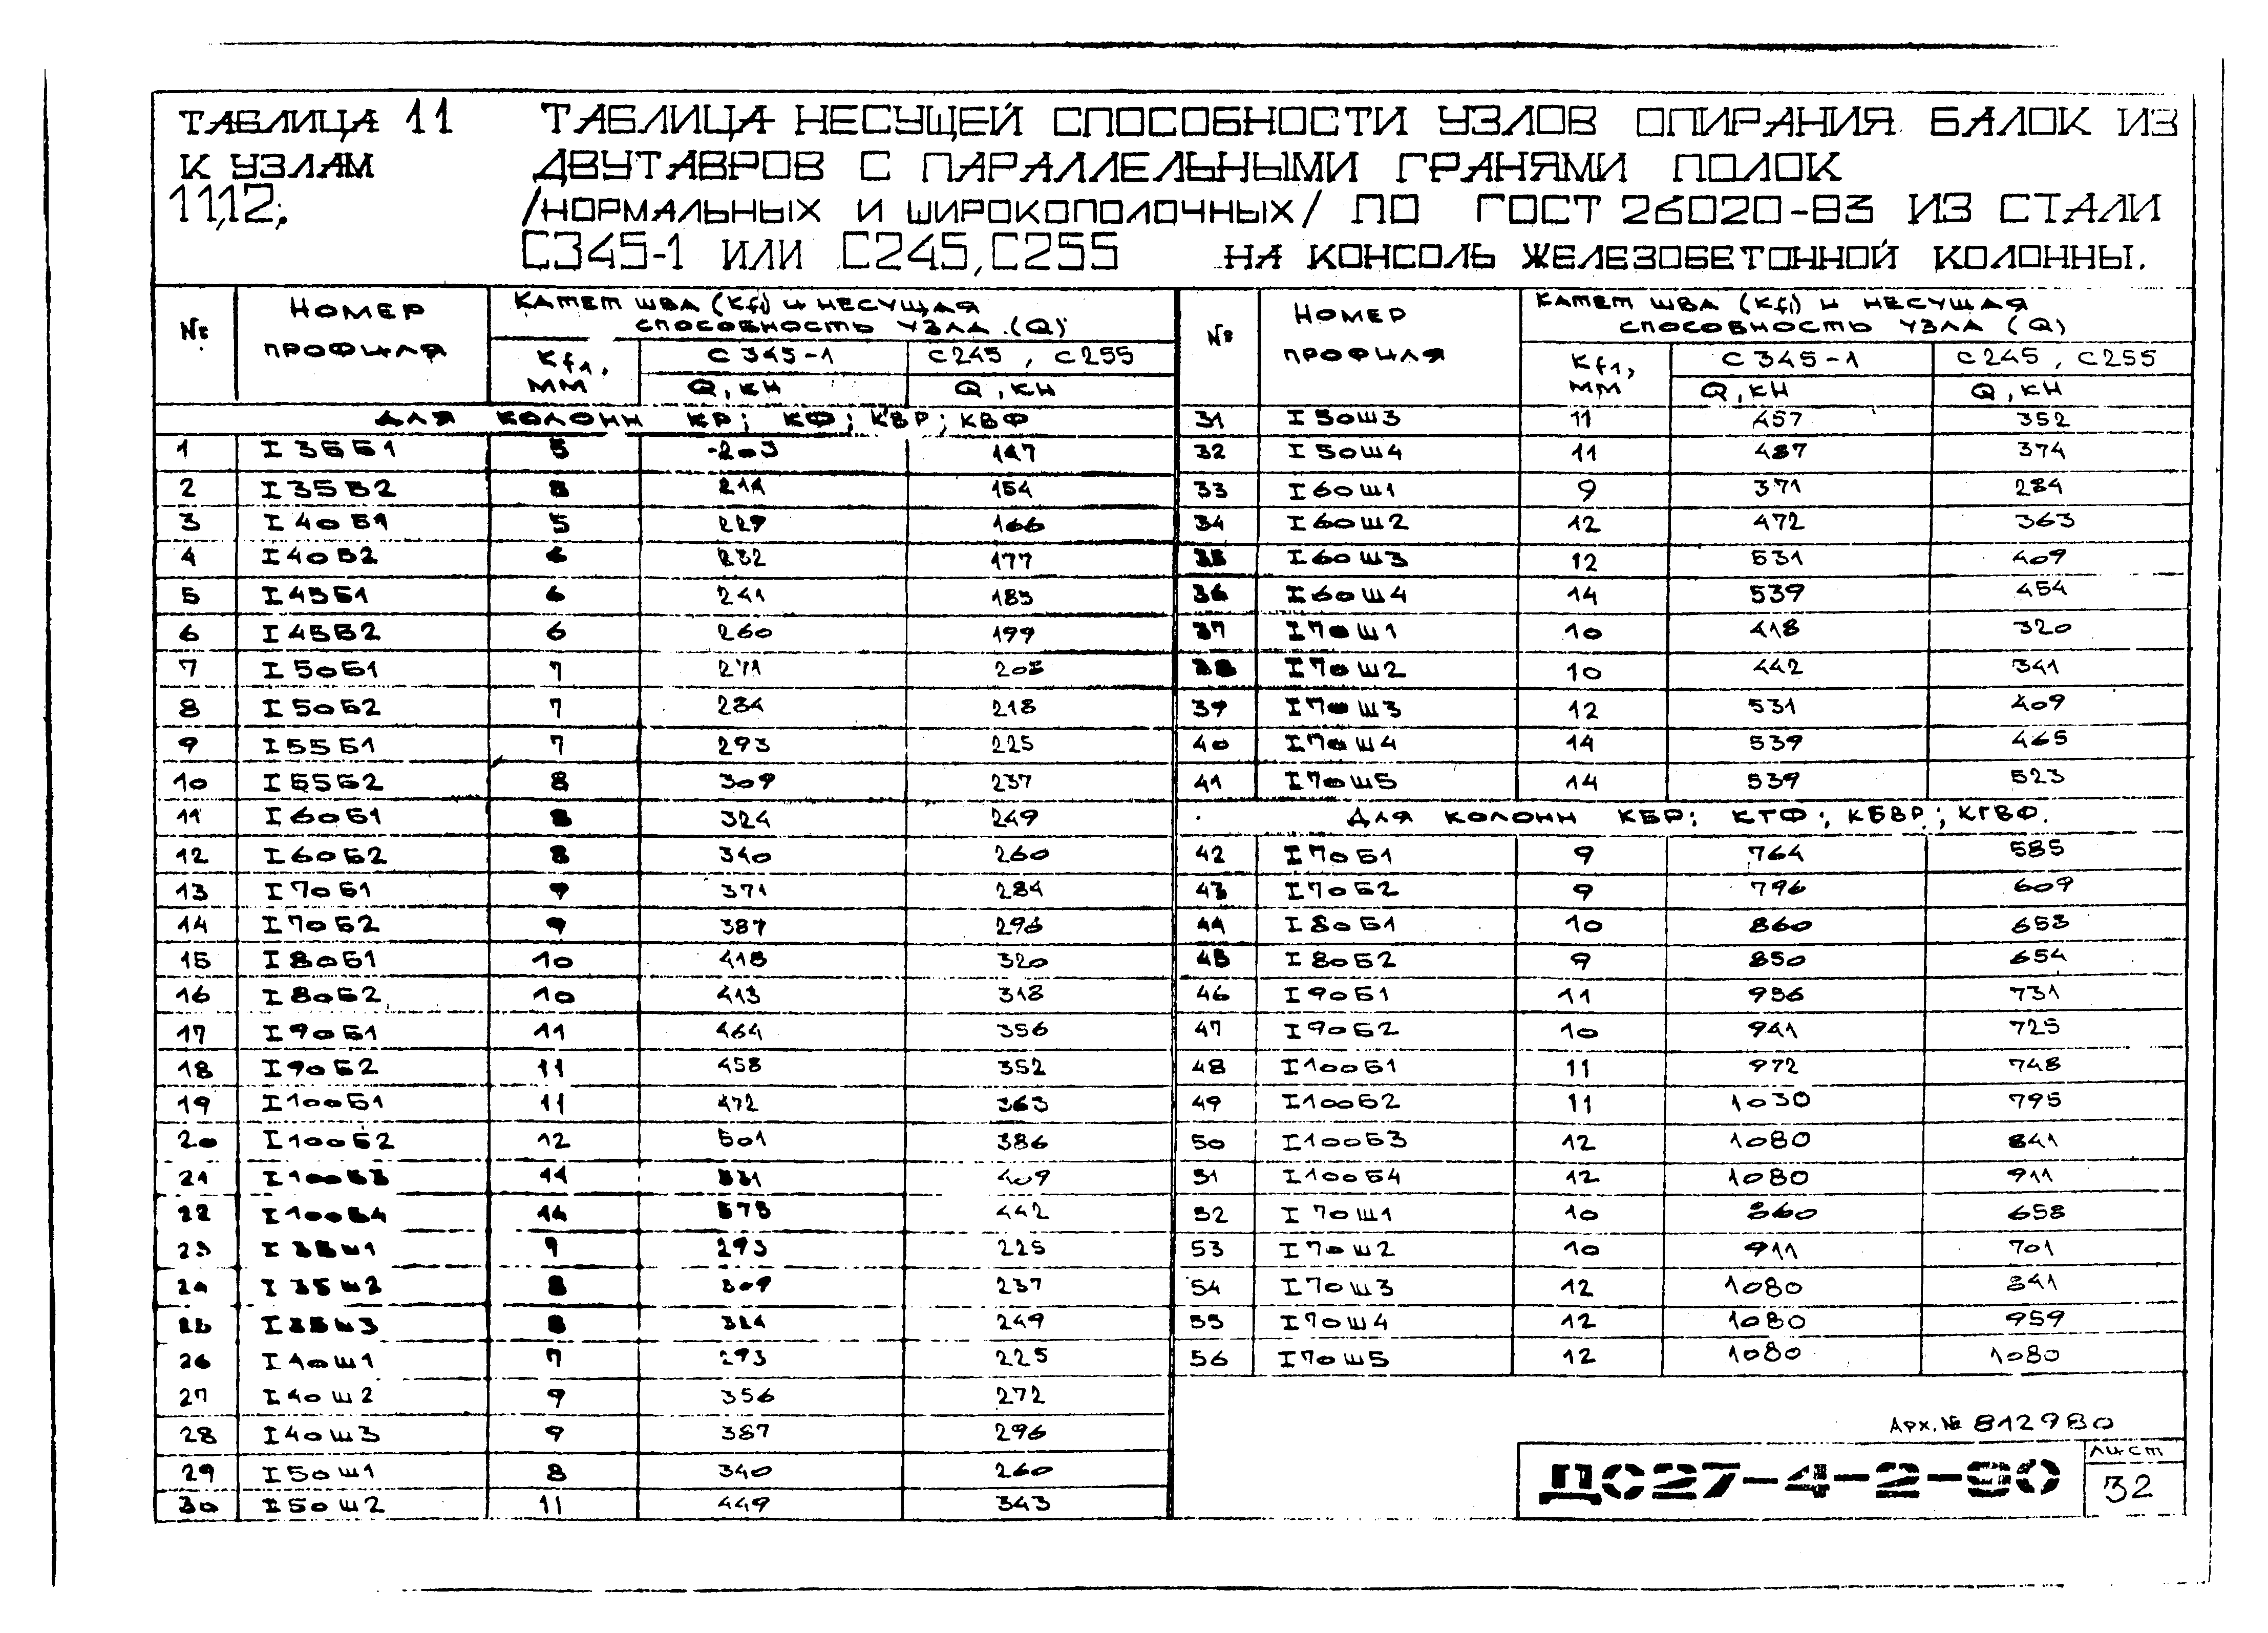 ТАБЛИЦА 11
К УЗЛАМ
11,12;
ТАБЛИЦА НЕСУЩЕЙ СПОСОБНОСТИ УЗЛОВ ОПИРАНИЯ БАЛОК ИЗ
ДВУТАВРОВ С ПАРАЛЛЕЛЬНЫМИ ГРАНЯМИ ПОЛОК
/НОРМАЛЬНЫХ И ШИРОКОПОЛОЧНЫХ/ ПО ГОСТ 26020-83 ИЗ СТАЛИ
С345-1 ИЛИ С245, С255 НА КОНСОЛЬ ЖЕЛЕЗОБЕТОННОЙ КОЛОННЫ.
№ НОМЕР ПРОФИЛЯ КАТЕТ ШВА (Kf1) И НЕСУЩАЯ СПОСОБНОСТЬ УЗЛА (Q)
Kf1, ММ С345-1 С245, С255
Q, КН Q, КН
ДЛЯ КОЛОНН КР; КФ; КВР; КВФ
1 I 35Б1 5 203 147
2 I 35Б2 214 154
3 I 40Б1 5 229 166
4 I 40Б2 6 232 177
5 I 45Б1 6 241 185
6 I 45Б2 6 260 199
7 I 50Б1 7 271 208
8 I 50Б2 7 284 218
9 I 55Б1 7 293 225
10 I 55Б2 8 309 237
11 I 60Б1 8 324 249
12 I 60Б2 8 340 260
13 I 70Б1 9 371 284
14 I 70Б2 9 387 296
15 I 80Б1 10 418 320
16 I 80Б2 10 413 318
17 I 90Б1 11 464 356
18 I 90Б2 11 458 352
19 I 100Б1 11 472 363
20 I 100Б2 12 501 386
21 I 100Б3 14 531 409
22 I 100Б4 14 575 442
23 I 35Ш1 9 293 225
24 I 35Ш2 8 309 237
25 I 35Ш3 8 324 249
26 I 40Ш1 7 293 225
27 I 40Ш2 9 356 272
28 I 40Ш3 9 387 296
29 I 50Ш1 8 340 260
30 I 50Ш2 11 449 343
№ НОМЕР ПРОФИЛЯ КАТЕТ ШВА (Kf1) И НЕСУЩАЯ СПОСОБНОСТЬ УЗЛА (Q)
Kf1, ММ С345-1 С245, С255
Q, КН Q, КН
31 I 50Ш3 11 457 352
32 I 50Ш4 11 487 374
33 I 60Ш1 9 371 284
34 I 60Ш2 12 472 363
35 I 60Ш3 12 531 409
36 I 60Ш4 14 539 454
37 I 70Ш1 10 418 320
38 I 70Ш2 10 442 341
39 I 70Ш3 12 531 409
40 I 70Ш4 14 539 465
41 I 70Ш5 14 539 523
ДЛЯ КОЛОНН КБР; КГФ; КБВР; КГВФ.
42 I 70Б1 9 764 585
43 I 70Б2 9 796 609
44 I 80Б1 10 860 658
45 I 80Б2 9 850 654
46 I 90Б1 11 956 731
47 I 90Б2 10 941 725
48 I 100Б1 11 972 748
49 I 100Б2 11 1030 795
50 I 100Б3 12 1080 841
51 I 100Б4 12 1080 911
52 I 70Ш1 10 860 658
53 I 70Ш2 10 911 701
54 I 70Ш3 12 1080 841
55 I 70Ш4 12 1080 959
56 I 70Ш5 12 1080 1080
Арх. № 812980
ДС27-4-2-90
ЛИСТ
32